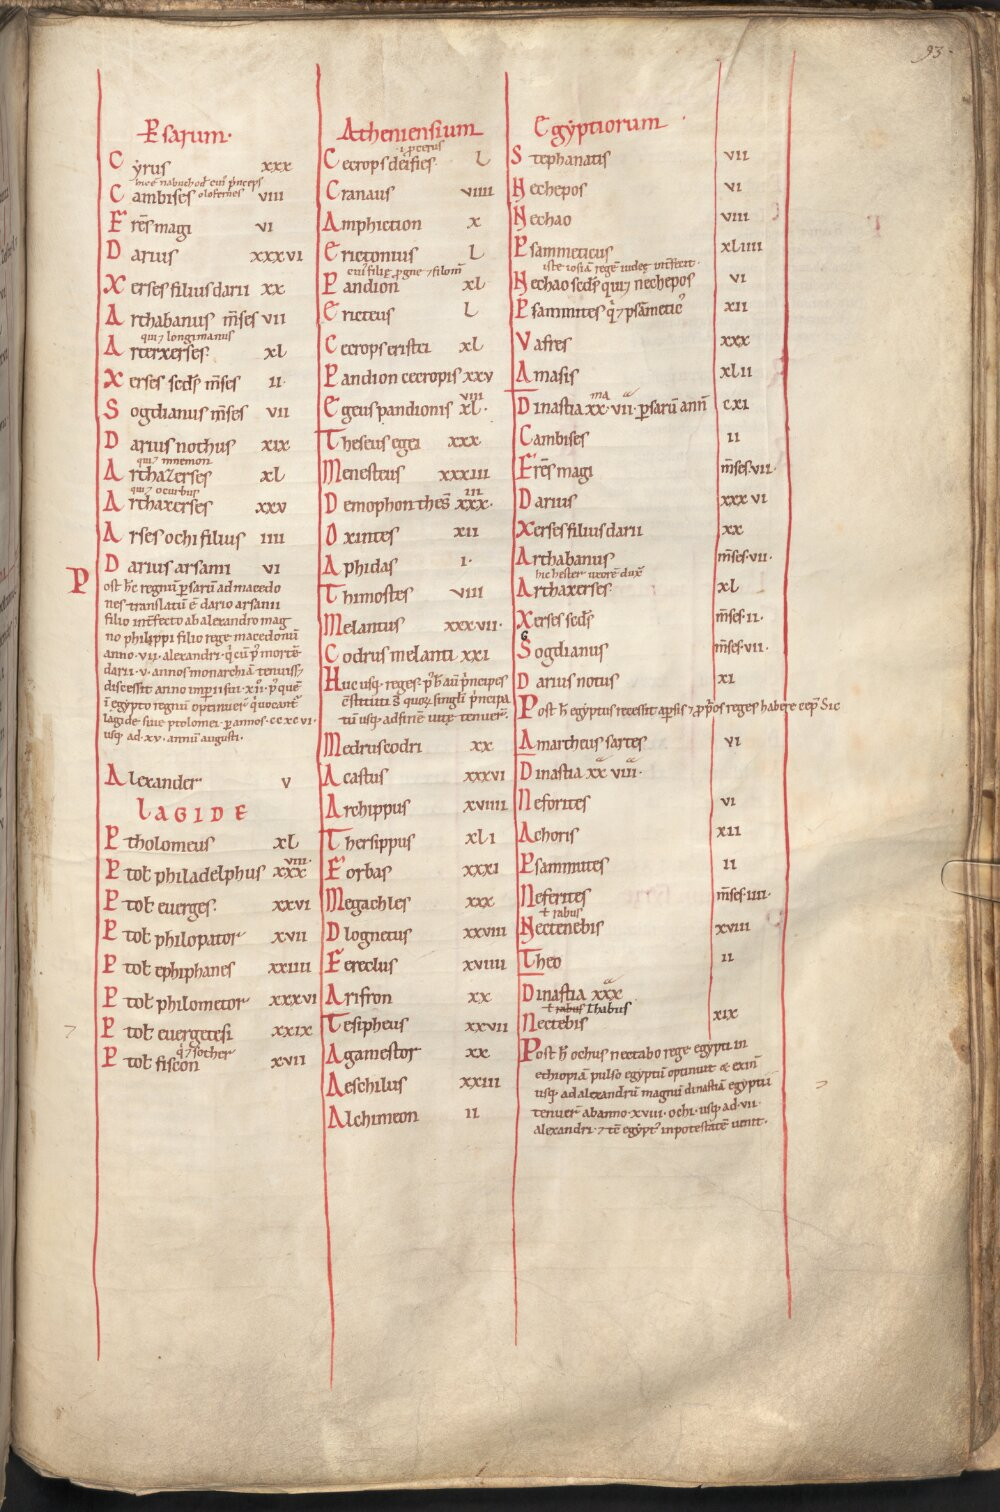 93
Psarum.
Cyrus xxx
hoc e nabuchod cui pͥnceps
Cambises olofernes viii
Fr̄es magi vi
Darius xxxvi
Xerses filius darii xx
Arthabanus m̄ses vii
qui ⁊ longimanus
Arterxerses xl
Xerses scd̄s m̄ses ii.
Sogdianus m̄ses vii
Darius nothus xix
qui ⁊ mnemon
Arthazerses xl
qui ⁊ ocurbus
Arthaxerses xxv
Arses ochi filius iiii
Darius arsami vi
Post h̄c regnū ꝑsarū ad macedo
nes translatū ē dario arsamii
filio int̄fecto ab alexandro mag
no philippi filio rege macedonū
anno .vii. alexandri. q̇ cū pͥ mortē
darii .v. annos monarchiā tenuiss;
discessit anno imperii sui .xii. pͥ quē
ī egypto regnū optinuer̄ quocant̄
lagide siue ptolomei. ꝑ annos .cc xc vi.
usq; ad .xv. annū augusti.
Alexander v
LAGIDE
Ptholomeus xl
Ptol̄ philadelphus xxx viii.
Ptol̄ euerges. xxvi
Ptol̄ philopator xvii
Ptol̄ ephiphanes xxiiii
Ptol̄ philometor xxxvi
Ptol̄ euergetesi xxix
q̇ ⁊ sother
Ptol̄ fiscon xvii
Atheniensium
.i. ꝓcerus
Cecrops deifies. L
Cranaus viiii
Amphiction x
Erictonius L
cuiꝰ filię ꝓgne ⁊ filom̄
Pandion xl
Ericteus L
Cecrops eristi xl
Pandion cecropis xxv
Egeus pandionis xl. viii
Theseus egei xxx
Menesteus xxxiii
Demophon thes̄ xxx. iii
Oxintes xii
Aphidas i.
Thimostes viii
Melantus xxxvii.
Codrus melanti xxi
Huc usq; reges. pͥ h̄ aū pͥncipes
c̄stituti s̄ quoꝝ singl̄i pͥncipa
tū usq; ad finē uitę tenuer̄.
Medrus codri xx
Acastus xxxvi
Archippus xviiii
Thersippus xli
Forbas xxxi
Megachles xxx
Dlognetus xxviii
Fereclus xviiii
Arifron xx
Tesipheus xxvii
Agamestor xx
Aeschilus xxiii
Alchimeon ii
Egyptiorum
Stephanatis vii
Nechepos vi
Nechao viii
Psammeticus xliiii
iste iosiā regē iudeę int̄fecit.
Nechao scd̄s qui ⁊ nechepos vi
Psammites q̇ ⁊ psāmeticꝰ xii
Vafres xxx
Amasis xlii
Dinastia xx. vii. ꝑsarū ann̄ cxi
Cambises ii
Fr̄es magi m̄ses .vii.
Darius xxxvi
Xerses filius darii xx
Arthabanus m̄ses .vii.
hic hester uxorē dux̄
Arthaxerses xl
Xerses scd̄s m̄ses .ii.
Sogdianus m̄ses .vii.
Darius notus xi
Post h̄ egyptus recessit a ꝑsis ⁊ ꝓpͥos reges habere cep̄ Sic
Amartheus sartes vi
Dinastia xx viii.
Neforites vi
Achoris xii
Psammutes ii
Neferites m̄ses .iiii.
ł rabus
Nectenebis xviii
Theo ii
Dinastia xxx
ł rabus Thabus
Nectebis xix
Post h̄ ochus nectabo rege egypti in
ethiopiā pulso egyptū optinuit & exin̄
usq; ad alexandrū magnū dinastiā egyptii
tenuer̄ ab anno .xviii. ochi. usq; ad .vii.
alexandri. ⁊ tc̄ egyptꝰ in potestatē uenit.